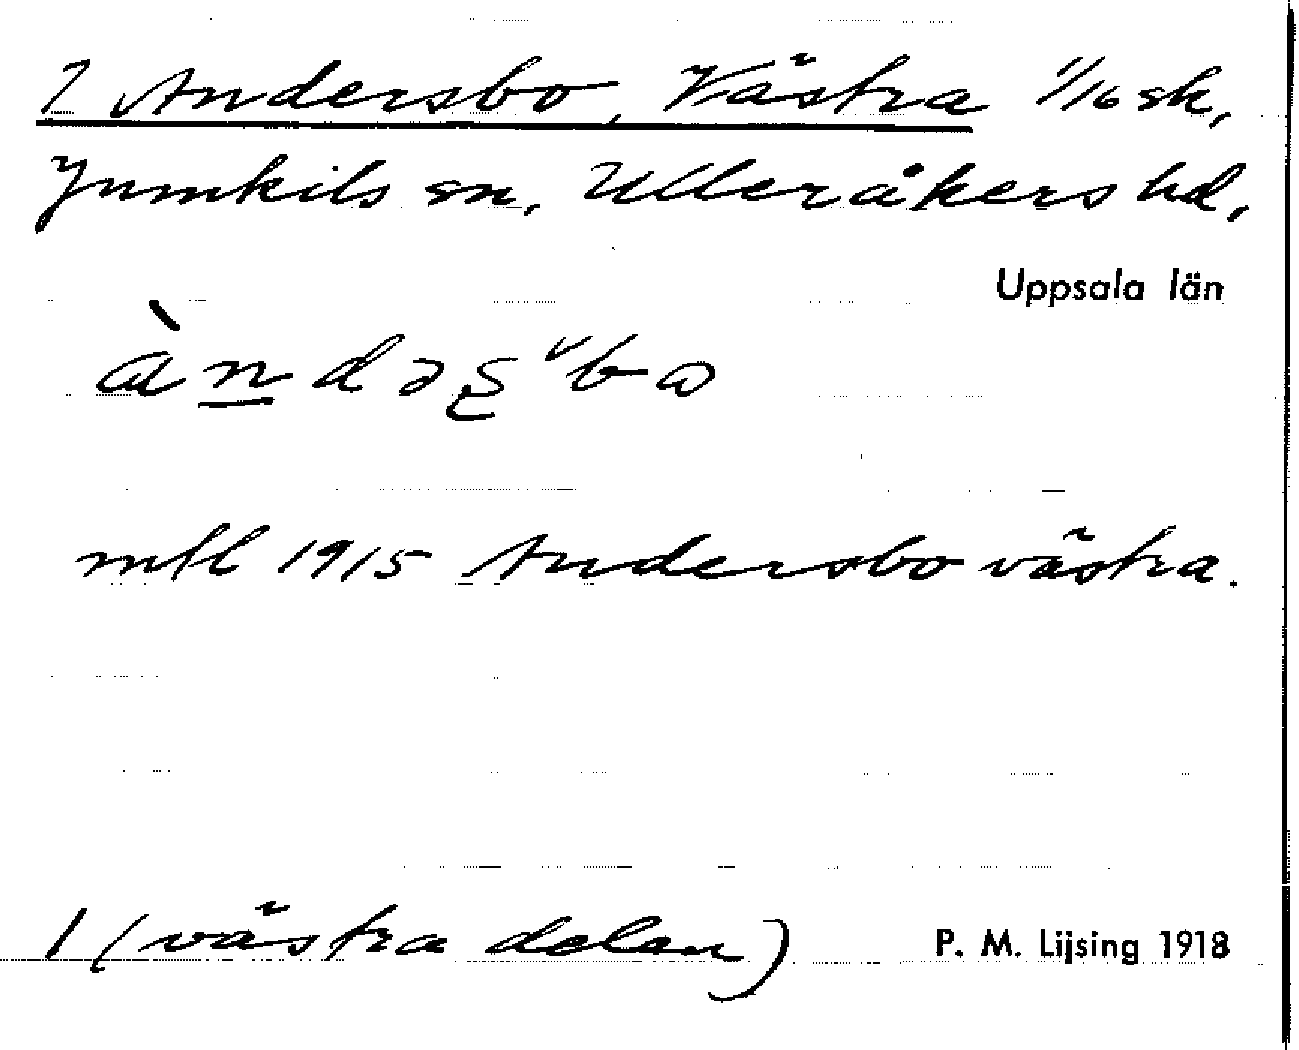 ? Andersbo, Västra 1/16 sk,
Jumkils sn, Ulleråkers hd,
Uppsala län
mfl 1915 Andersbo västra.
1 (västra delen)
P. M. Lijsing 1918